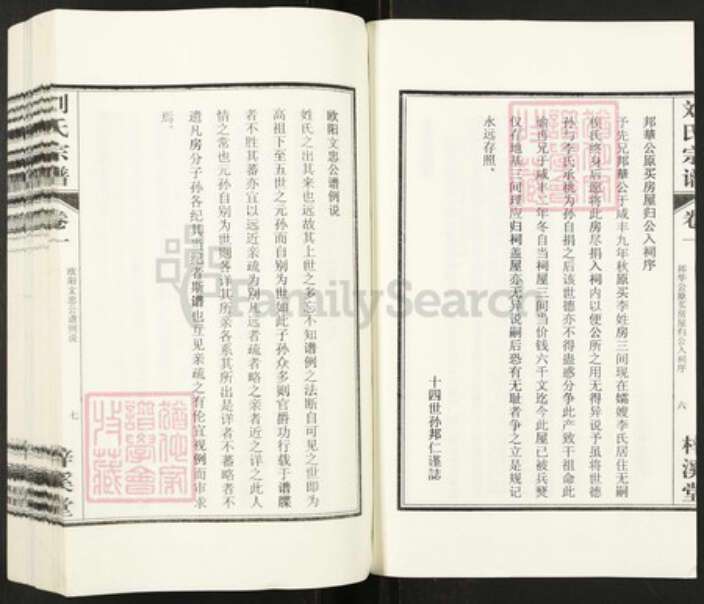 刘氏宗谱
卷一
邦华公原买房屋归公入祠序
六
梓溪堂
邦華公原买房屋归公入祠序
予先兄邦華公于咸丰九年秋原买李姓房三间现在孀嫂李氏居住无嗣
候氏终身后愿将此房尽捐入祠内以便公所之用无得异说予虽将世德
孙与李氏承桃为孙自捐之后该世德亦不得蛊惑分争此产致干祖命此
喻再兄于咸丰二年冬自当祠屋三间当价钱六千文迄今此屋已被兵燹
仅存地基二间理应归祠盖屋亦无异说嗣后恐有无耻者争之立是规记
永远存照、
十四世孙邦仁谨誌
欧阳文忠公谱例说
姓氏之出其来也远故其上世之多忘不知谱例之法断自可见之世即为
高祖下至五世之元孙而自别为世如此子孙众多则官爵功行载于谱牒
者不胜其蕃亦宜以远近亲疏为别凡远者疏者略之亲者近之详之此人
情之常也元孙自别为世则各详其所亲各系其所出是详者不蕃略者不
遗凡房分子孙各纪其当纪者斯谱也互见亲疏之有伦宜视例而审求
焉、
刘氏宗谱
卷一
欧阳文忠公谱例说
七
梓溪堂
FamilySearch